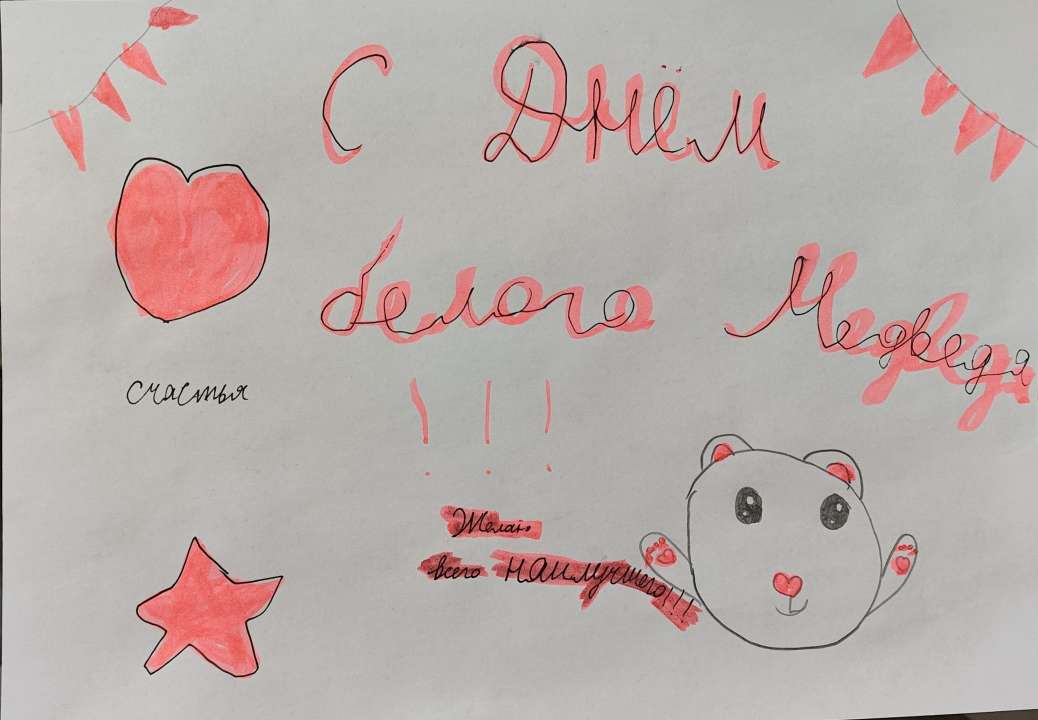 С Днём
белого Медведя
!!!
счастья
Желаю
всего наилучшего!!!